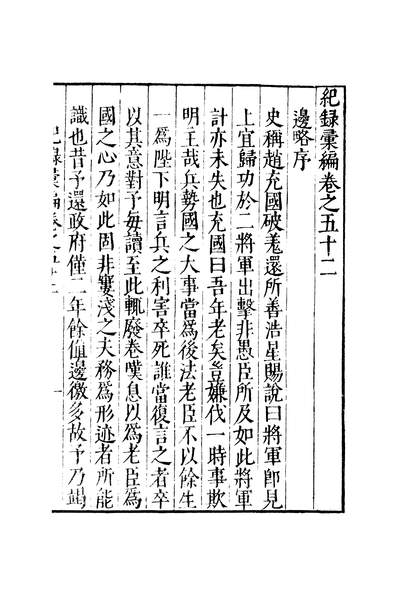 紀録彙編卷之五十二
邊略序
史稱趙充國破羌還所善浩星賜說曰將軍卽見
上宜歸功於二將軍出擊非愚臣所及如此將軍
計亦未失也充國曰吾年老矣豈嫌伐一時事欺
明主哉兵勢國之大事當爲後法老臣不以餘生
一爲陛下明言兵之利害卒死誰當復言之者卒
以其意對予每讀至此輒廢卷嘆息以爲老臣爲
國之心乃如此固非窶淺之夫務爲形迹者所能
識也昔予還政府僅二年餘値邊徼多故予乃竭
紀録彙編卷之五十二
一